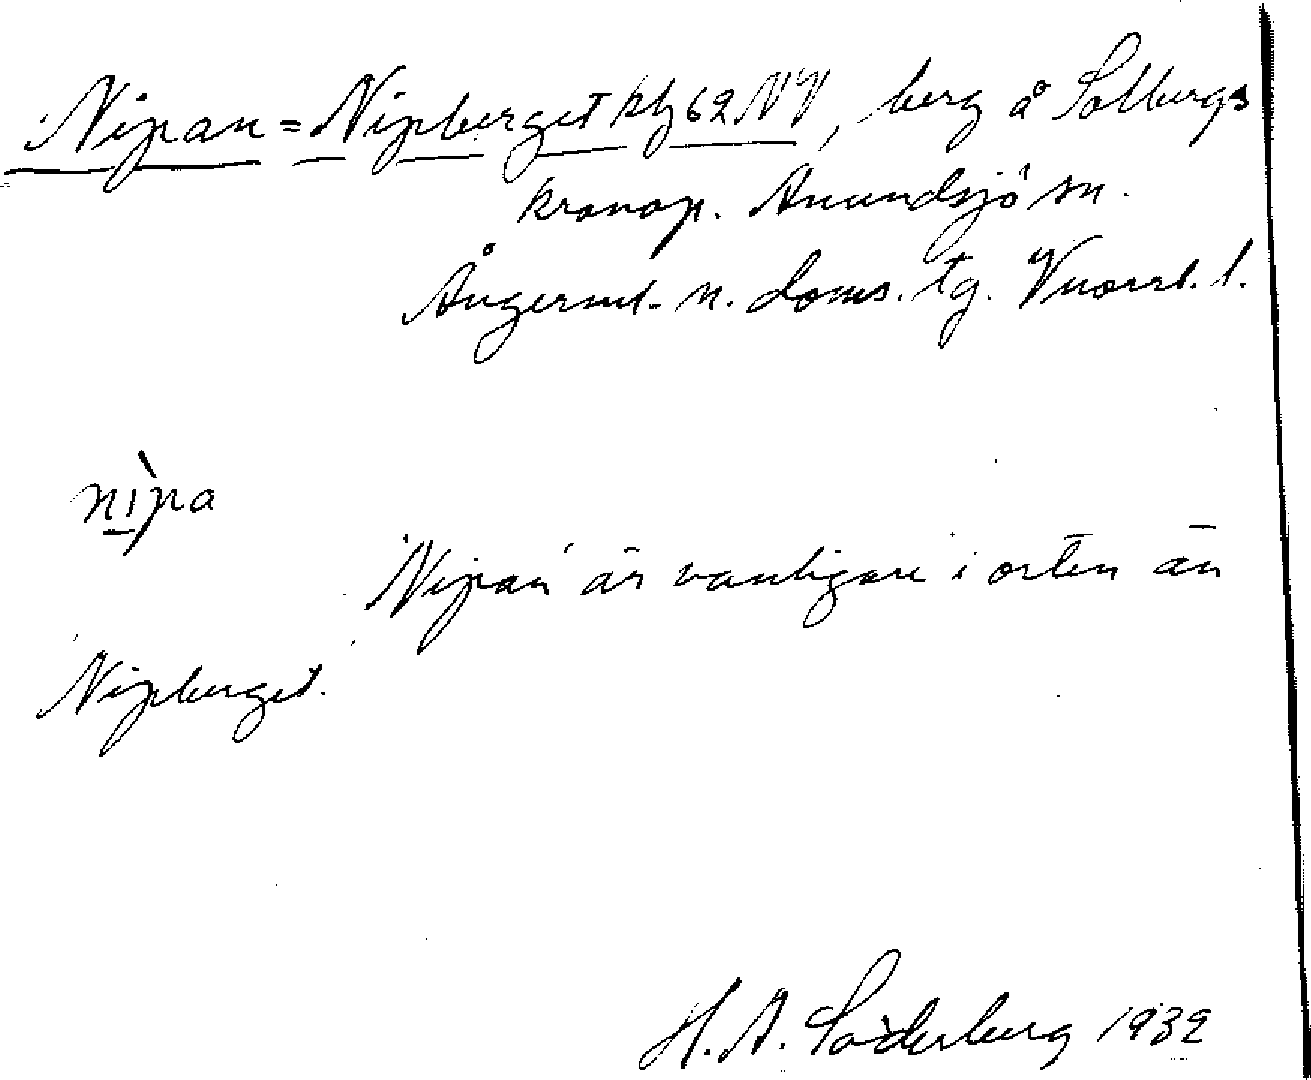 Nipan = Nipberget kbl 62 NV, berg å Solbergs
kronop. Anundsjö sn.
Ångerml. n. doms. tg. Vnorrl. l.
nìpa
'Nipan' är vanligare i orten än
'Nipberget.'
H. A. Söderberg 1932